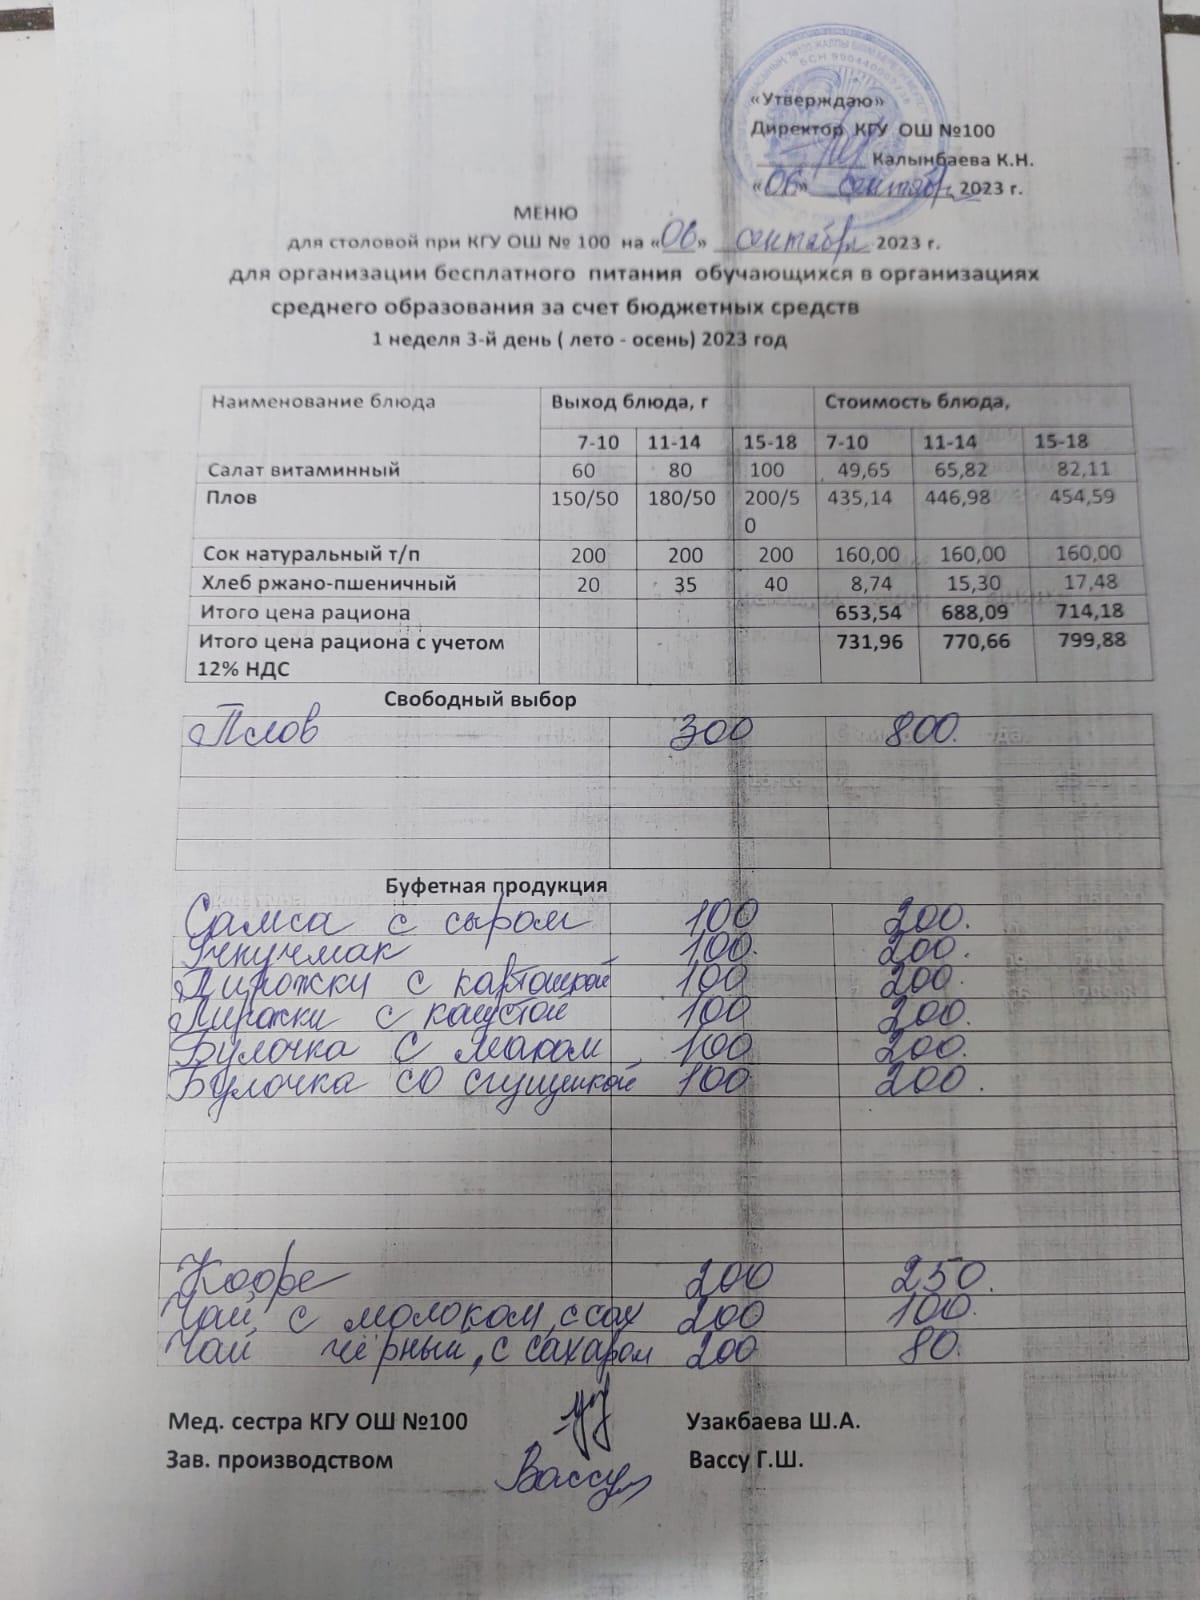 «Утверждаю»
Директор КГУ ОШ №100
Калынбаева К.Н.
«06» сентябрь 2023 г.
МЕНЮ
для столовой при КГУ ОШ № 100 на «06» сентября 2023 г.
для организации бесплатного питания обучающихся в организациях
среднего образования за счет бюджетных средств
1 неделя 3-й день ( лето - осень) 2023 год
Наименование блюда Выход блюда, г Стоимость блюда,
7-10 11-14 15-18 7-10 11-14 15-18
Салат витаминный 60 80 100 49,65 65,82 82,11
Плов 150/50 180/50 200/5 435,14 446,98 454,59
0
Сок натуральный т/п 200 200 200 160,00 160,00 160,00
Хлеб ржано-пшеничный 20 35 40 8,74 15,30 17,48
Итого цена рациона 653,54 688,09 714,18
Итого цена рациона с учетом 731,96 770,66 799,88
12% НДС
Свободный выбор
Плов 300 800.
Буфетная продукция
Самса с сыром 100 200.
Учкучмак 100. 200.
Пирожки с картошкой 100 200.
Пирожки с капустой 100 200.
Булочка с маком 100 200.
Булочка со сгущенкой 100 200.
Кофе 200 250.
Чай с молоком, с сах 200 100.
Чай чёрный, с сахаром 200 80.
Мед. сестра КГУ ОШ №100 Узакбаева Ш.А.
Зав. производством Вассу Вассу Г.Ш.